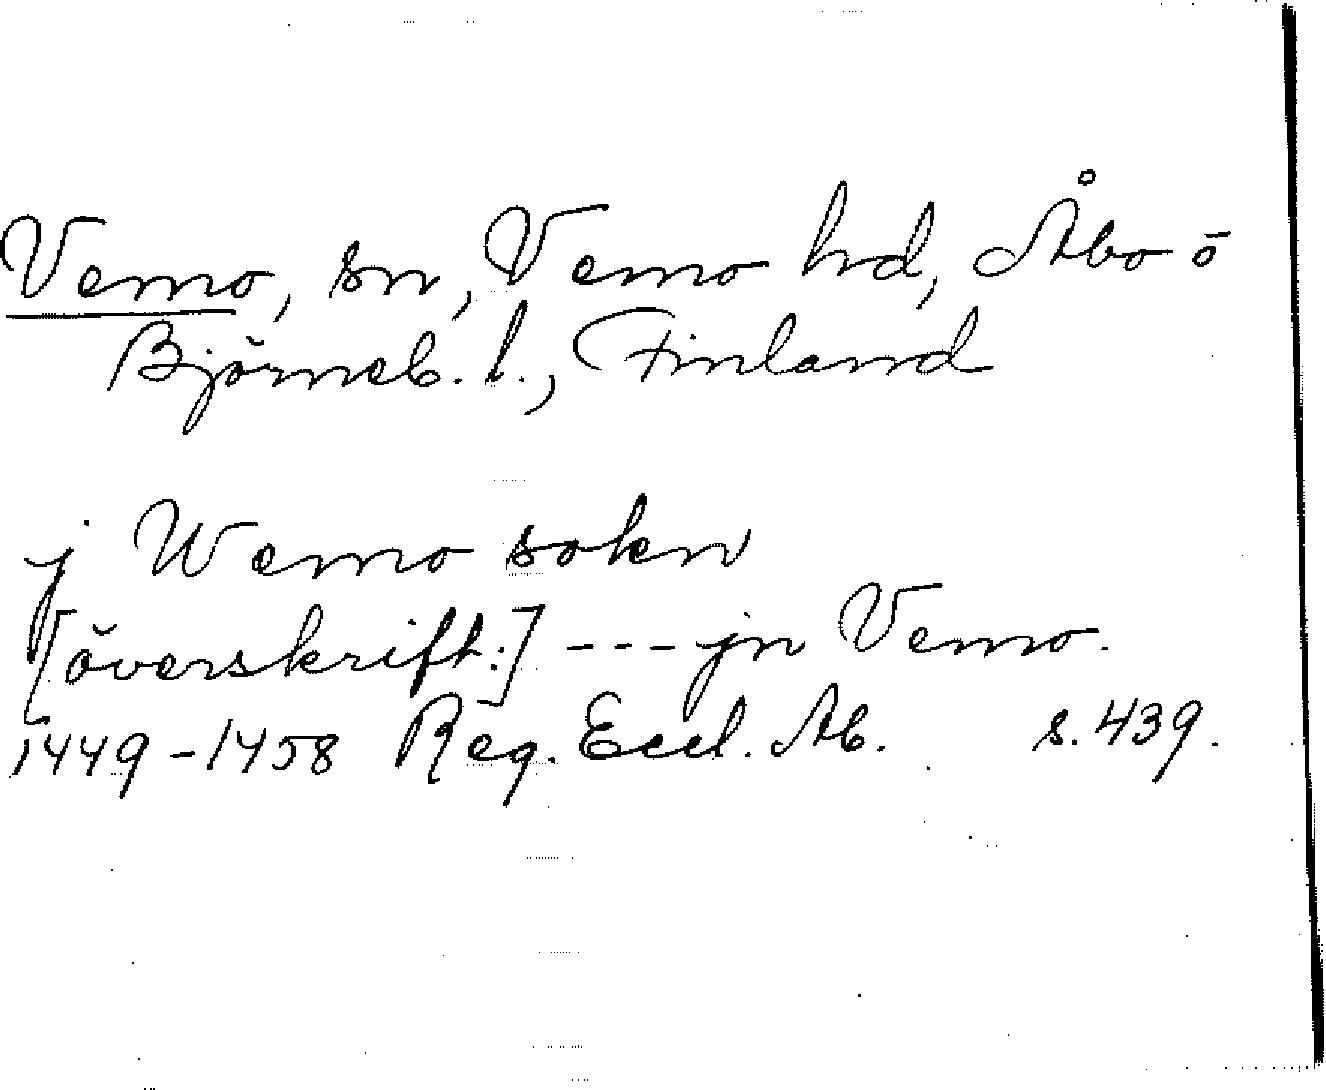 Vemo, sn, Vemo hd, Åbo o
Björneb. l., Finland
j Wemo sokn
[överskrift:] --- jn Vemo.
1449-1458 Reg. Eccl. Ab. s. 439.